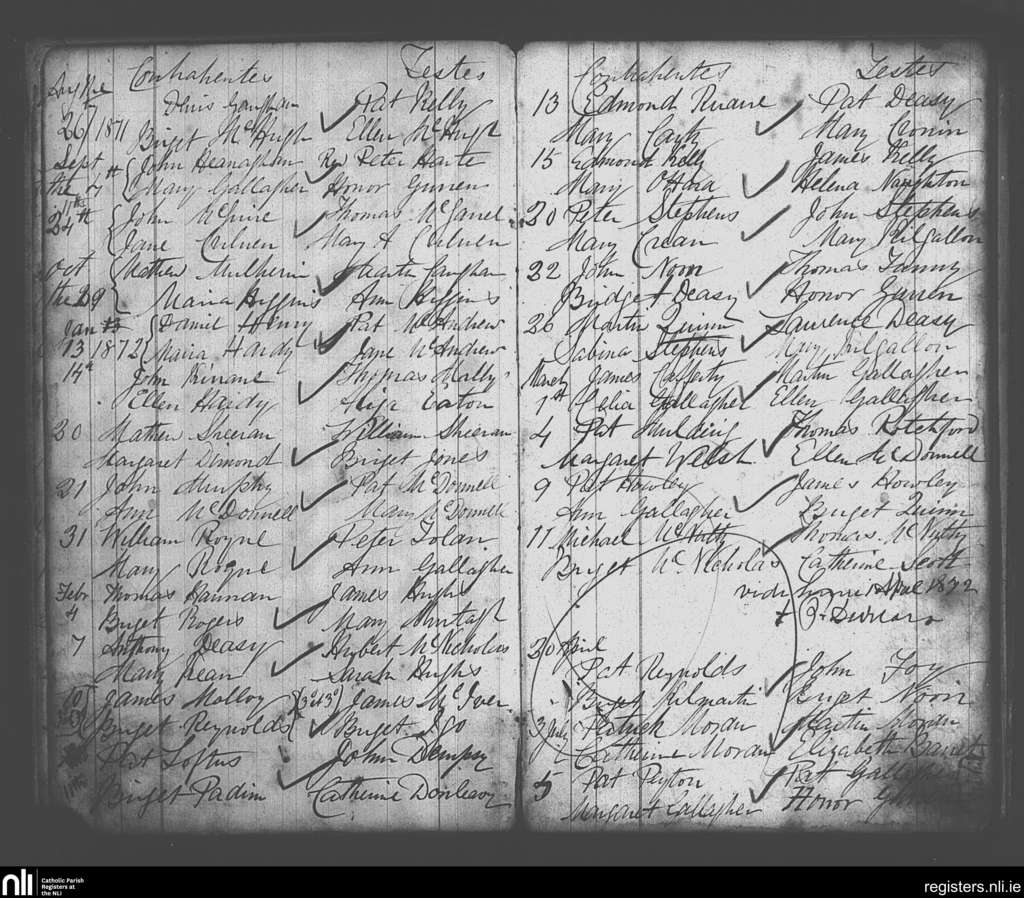 Contrahentes Testes
Pat Kelly
26 1871 Briget McHugh Ellen McHugh
Sept John Heanaghan Revd Peter Harte
the 7th Mary Gallagher Honor
24th John McGuire Thomas
Jane Culnen Mary A Culnen
Oct Mathew Mulherin Martin Caughan
the 29 Maria Higgins Ann Higgins
Jan Daniel Henry Pat McAndrew
13 1872 Maria Hardy Jane McAndrew
14th John Kinane Thomas Nally
Ellen Hardy Eaton
20 Mathew Sheeran William Sheeran
Margaret Dimond Briget Jones
21 John Murphy Pat McDonnell
Ann McDonnell Mary McDonnell
31 William Rogue Peter Tolan
Mary Rogue Ann Gallagher
Febr Thomas Hannan James Hughs
4 Briget Rogers Mary Murtagh
7 Anthony Deasy Hubert McNicholas
Mary Kean Sarah Hughs
10 James Molloy James McIver
Briget Reynolds Briget Igo
Pat Loftus John Dempsy
Briget Padin Catherine Donleavy
Contrahentes Testes
13 Edmond Ruane Pat Deasy
Mary Canty Mary Cronin
15 Edmond Kelly James Kelly
Mary O'Hora Helena Naughton
20 Peter Stephens John Stephens
Mary Crean Mary Kilgallon
22 John Noon Thomas
Bridget Deasy Honor
26 Martin Quinn Laurence Deasy
Sabina Stephens Mary Kilgallon
March James Cafferty Martin Gallagher
1st Celia Gallagher Ellen Gallagher
4 Pat Thomas Rotchford
Margaret Welsh Ellen McDonnell
9 Pat Howley James Howley
Ann Gallagher Briget Quinn
11 Michael McNulty Thomas McNulty
Briget McNicholas Catherine Scott
vidi 1872
20 April
Pat Reynolds John Foy
Briget Kilmartin Briget Noon
3 July Patrick Moran Martin Moran
Catherine Moran Elizabeth Barrett
5 Pat Peyton Pat
Margaret Gallagher Honor
nli Catholic Parish
Registers at
the NLI
registers.nli.ie